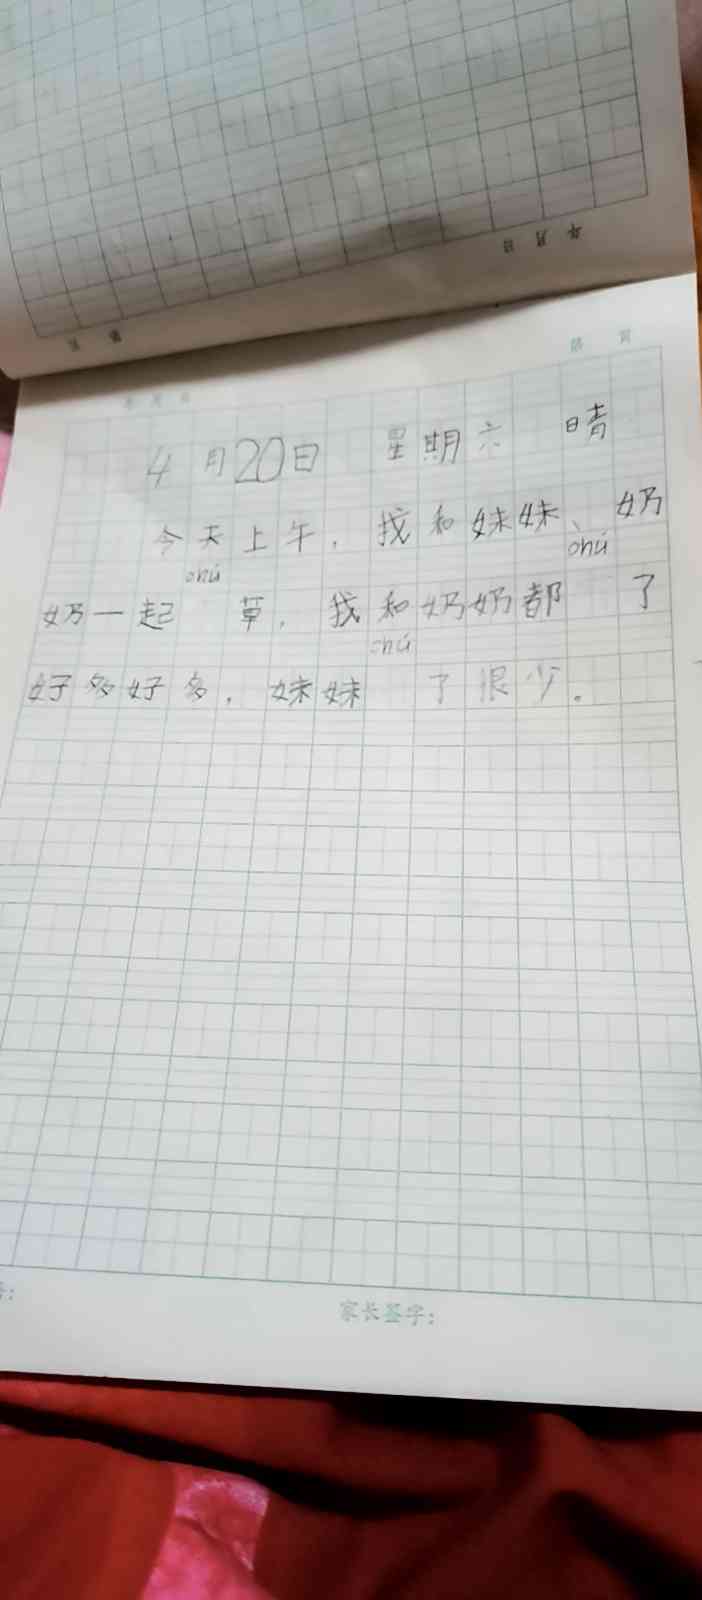 年 月 日
晴 页
4月20日 星期六 晴
今天上午，我和妹妹、奶
chú chú
奶一起 草，我和奶奶都 了
chú
好多好多，妹妹 了很少。
家长签字：